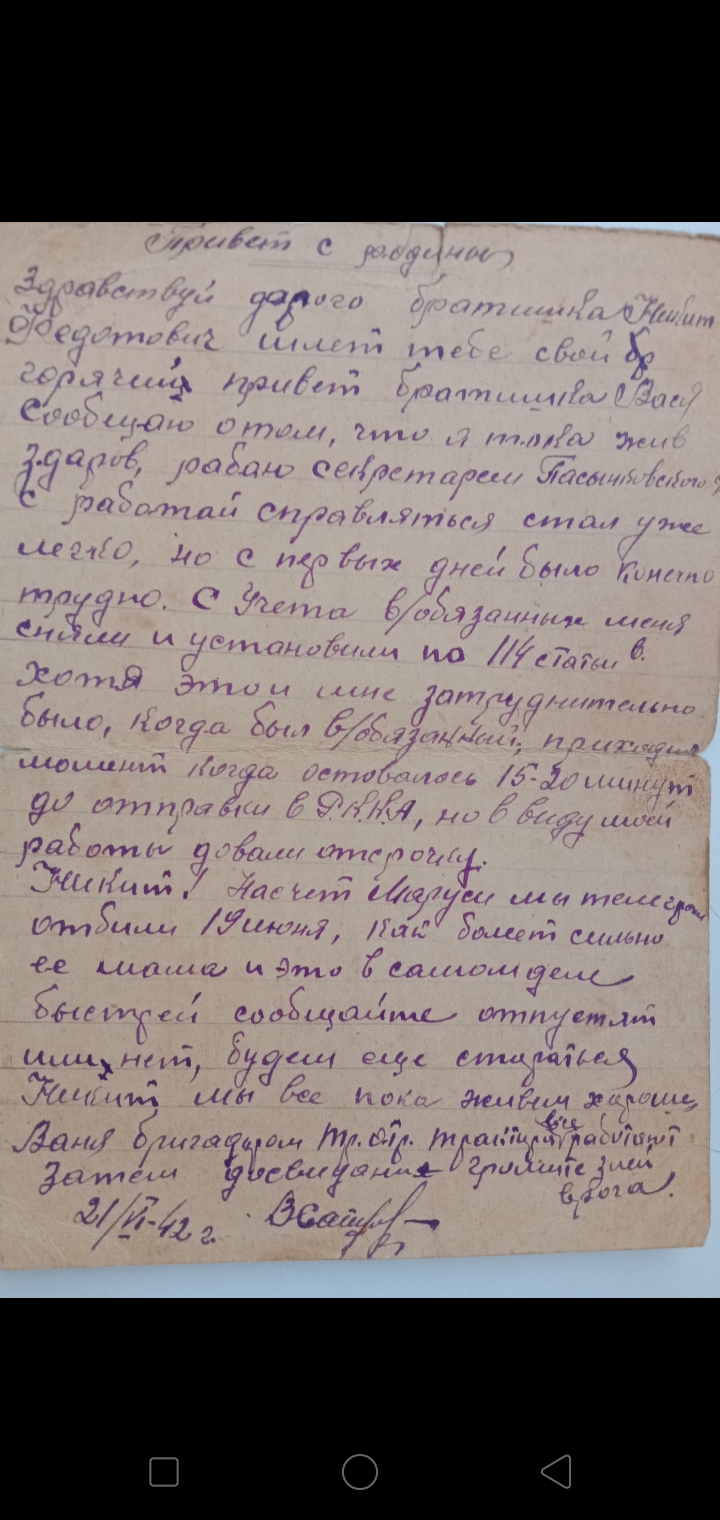 Привет с родины
Здравствуй дарого братишка Никит
Федотович шлет тебе свой
горячий привет братишка Вася
Сообщаю о том, что я пока жив
здаров, рабаю секретарем Пасынковского
С работай справляться стал уже
легко, но с первых дней было конечно
трудно. С Учета в/обязанных меня
сняли и установили по 114 статьи в.
хотя этои мне затруднительно
было, когда был в/обязанный, приходил
момент когда оставалось 15-20 минут
до отправки в Р.К.К.А, но в виду моей
работы довали отсрочку.
Никит! Насчет Маруси мы телеграм
отбили 19 июня, как болеет сильно
ее мама и это в самом деле
быстрей сообщайте отпустят
или нет, будем еще стараться
Никит мы все пока живем хорошо,
Ваня бригадиром тр. отр. трактора все работают
Затем досвидания громите злей
врага.
21/VI-42 г.